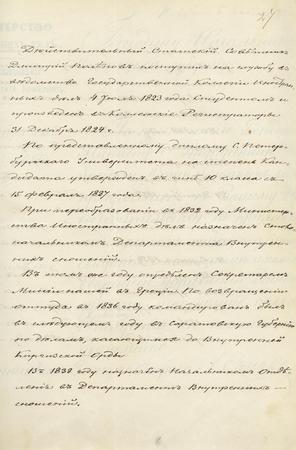 27
Действительный Статскій Совѣтникъ
Дмитрій поступилъ на службу въ
вѣдомство Государственной Коллегіи Иностран-
ныхъ дѣлъ 4 Іюля 1823 года Студентомъ и
произведенъ въ Коллежскіе Регистраторы
31 Декабря 1824 г.
По представленному диплому С. Петер-
бургскаго Университета на степень Кан-
дидата утвержденъ въ чинѣ 10 класса съ
15 февраля 1827 года.
При переобразованіи въ 1832 году Министер-
ства Иностранныхъ дѣлъ назначенъ Столо-
начальникомъ Департамента Внутрен-
нихъ сношеній.
Въ томъ же году опредѣленъ Секретаремъ
Миссіи нашей въ Греціи. По возвращеніи
оттуда въ 1836 году командированъ былъ
въ слѣдующемъ году въ Саратовскую Губернію
по дѣламъ, касающимся до Внутренней
Киргизской Орды.
Въ 1838 году назначенъ Начальникомъ Отдѣ-
ленія въ Департаментъ Внутреннихъ
сношеній.